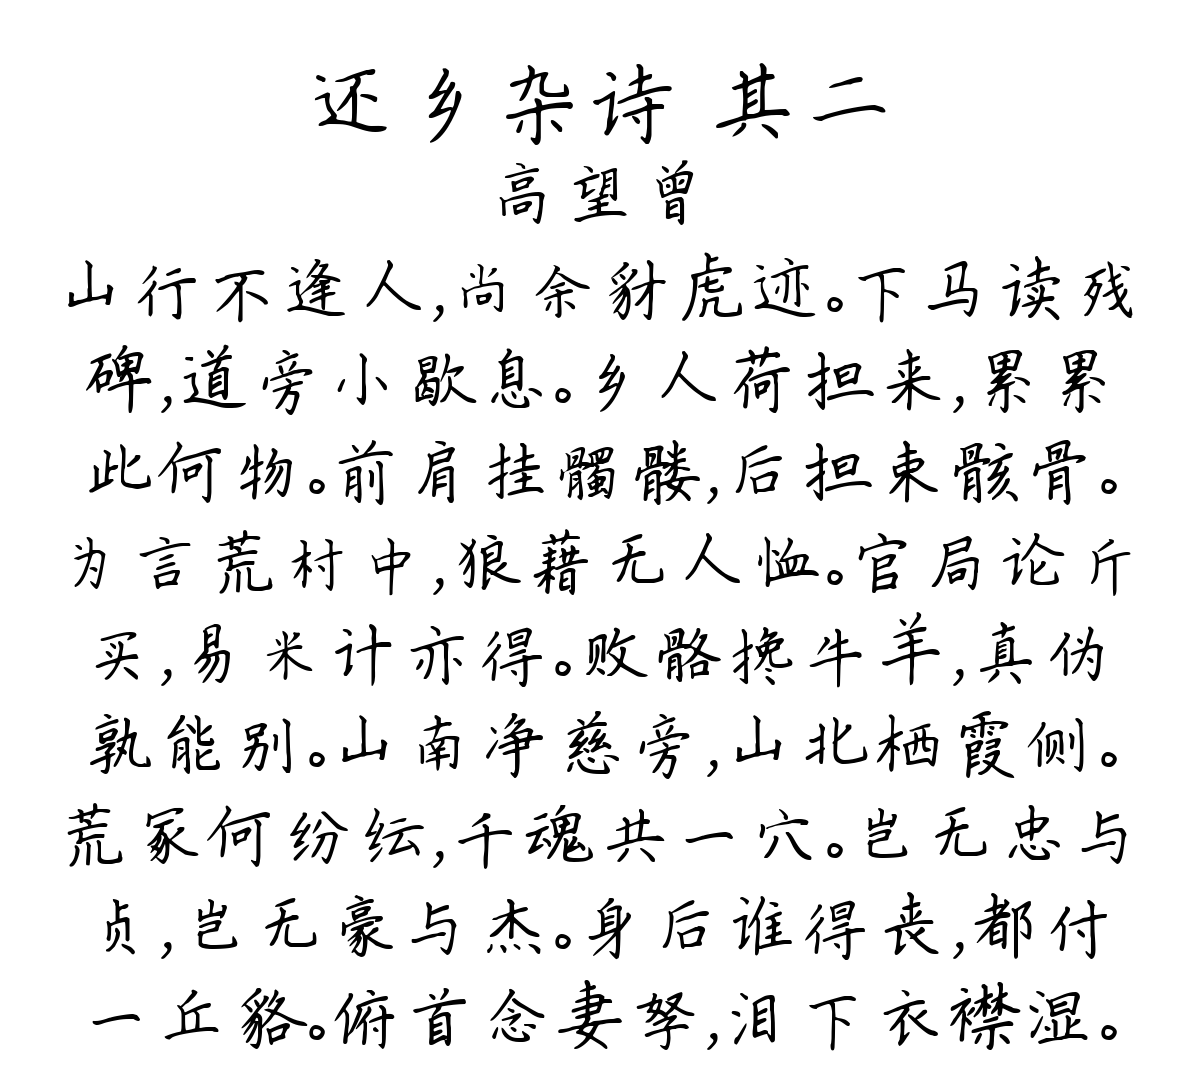 还乡杂诗 其二
高望曾
山行不逢人,尚余豺虎迹。下马读残
碑,道旁小歇息。乡人荷担来,累累
此何物。前肩挂髑髅,后担束骸骨。
为言荒村中,狼藉无人恤。官局论斤
买,易米计亦得。败骼搀牛羊,真伪
孰能别。山南净慈旁,山北栖霞侧。
荒冢何纷纭,千魂共一穴。岂无忠与
贞,岂无豪与杰。身后谁得丧,都付
一丘貉。俯首念妻孥,泪下衣襟湿。